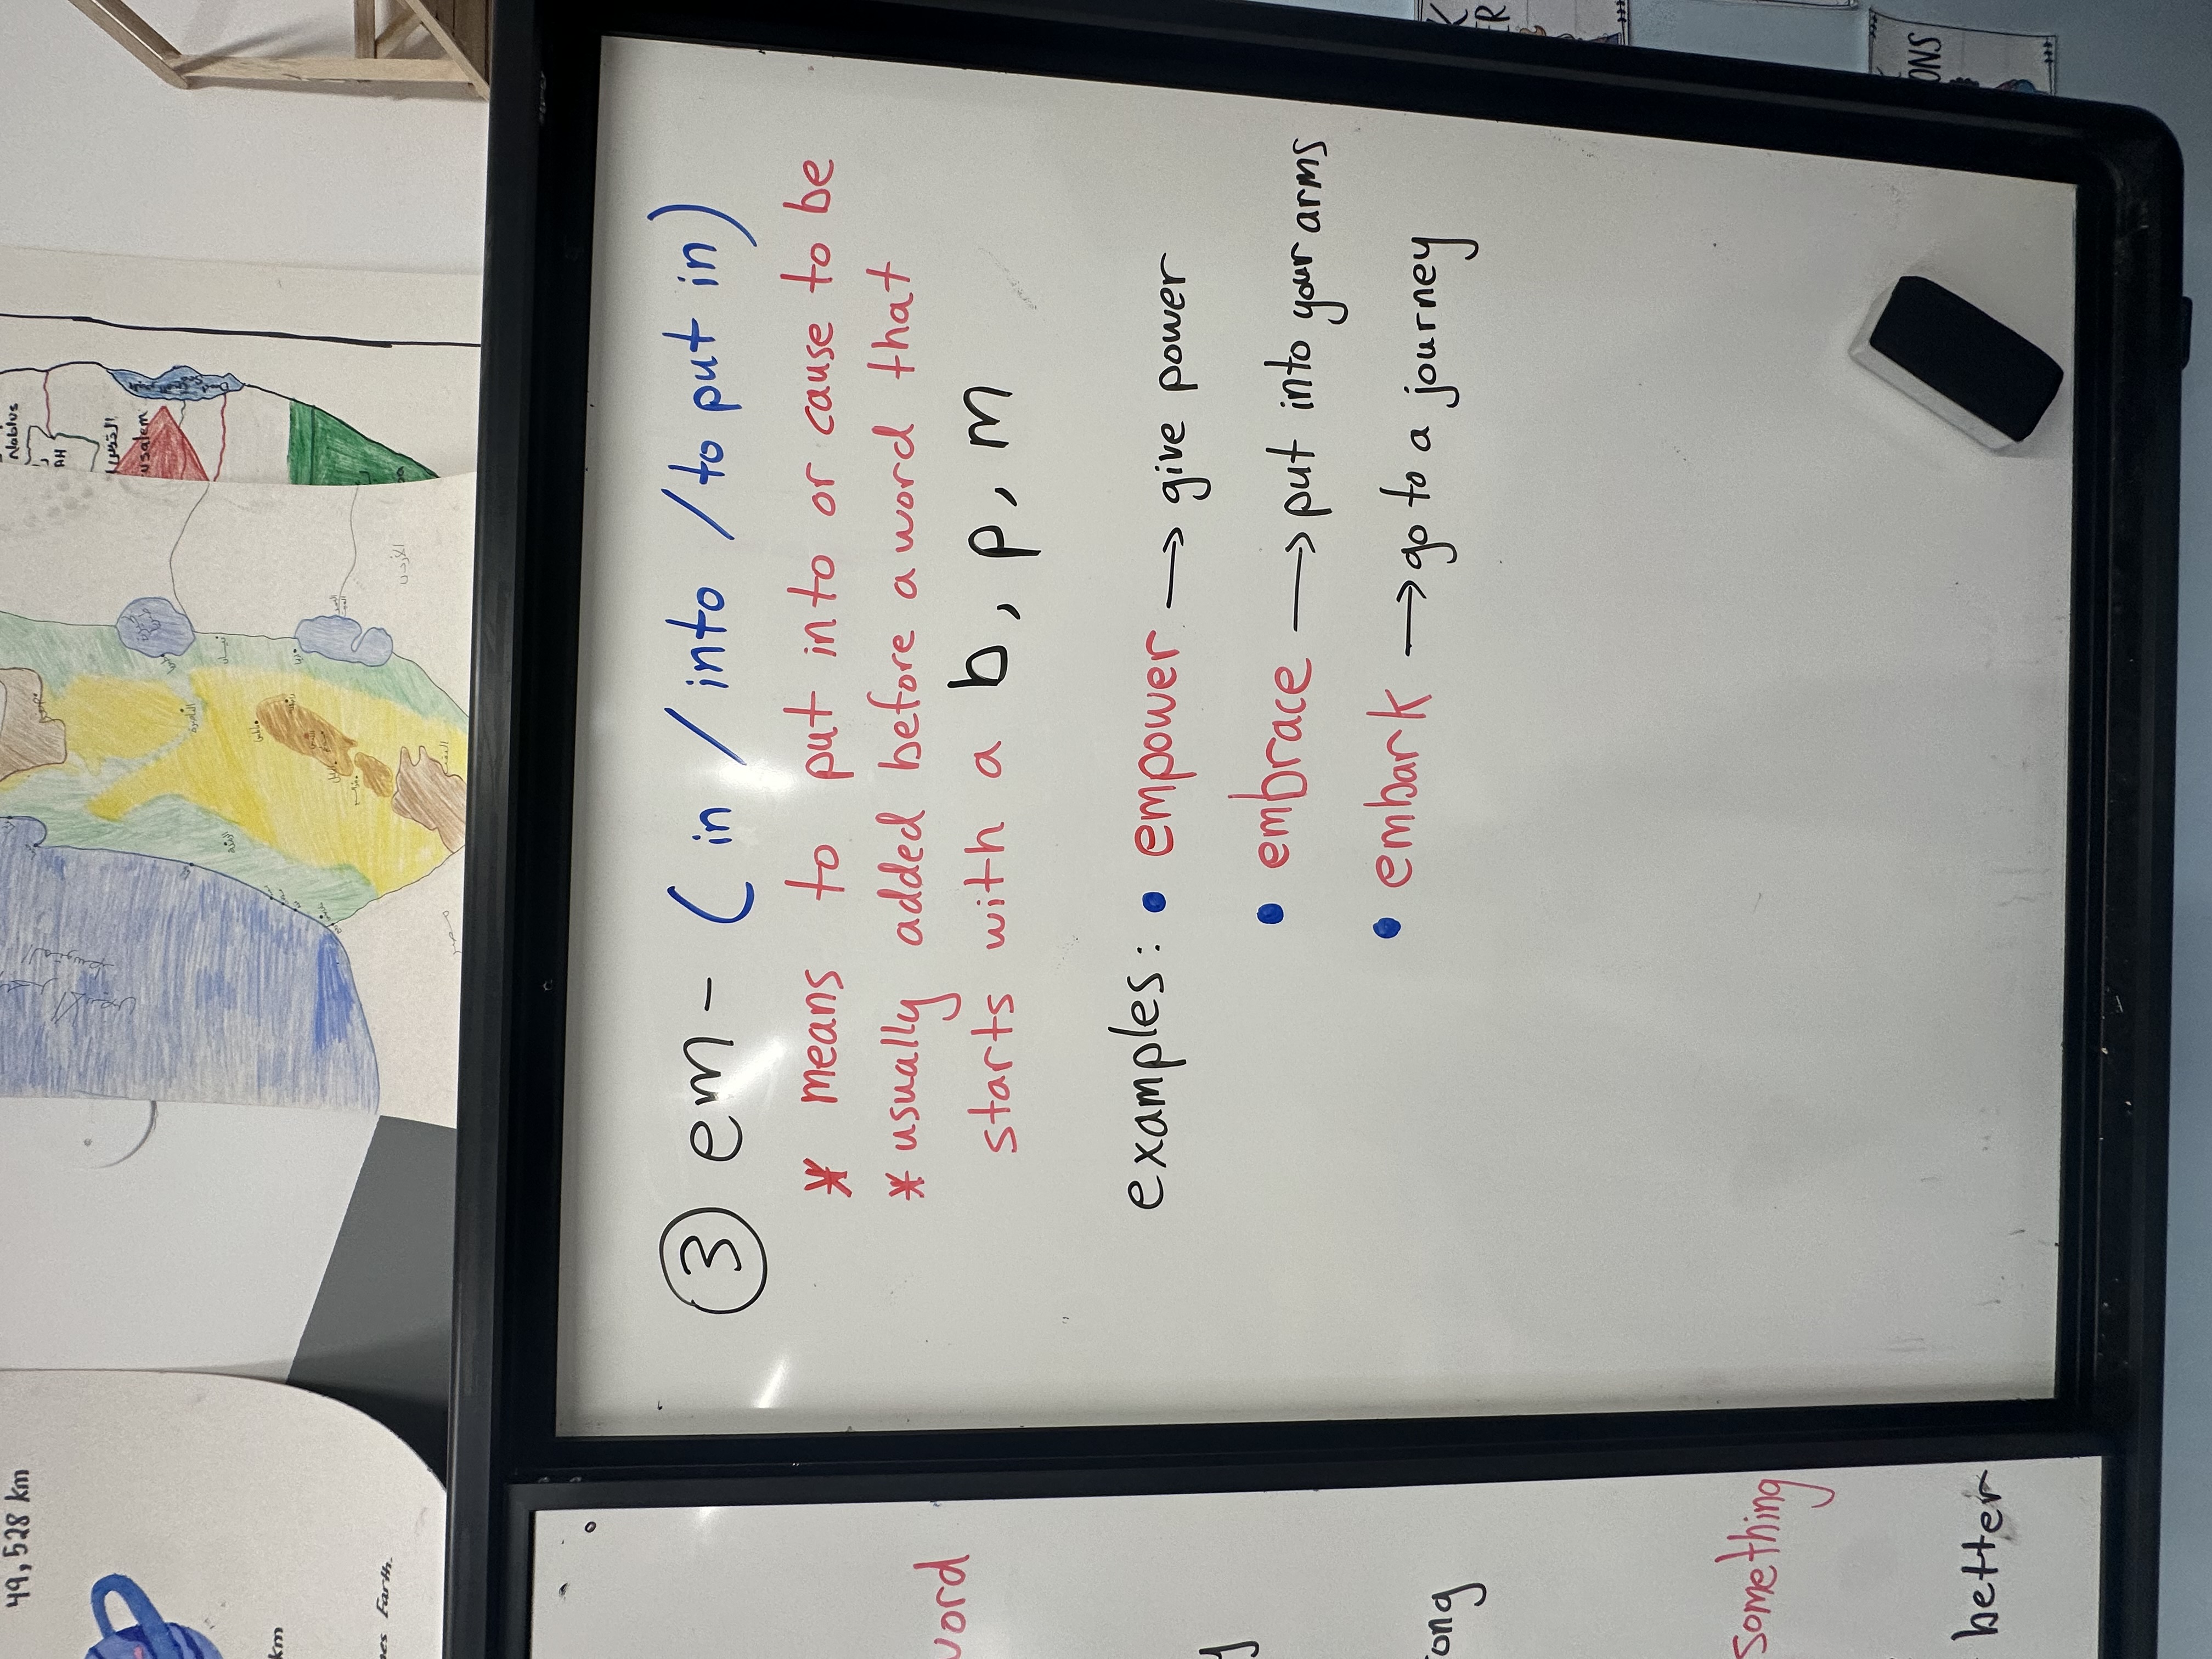 ③ em- (in / into / to put in)
* means to put into or cause to be
* usually added before a word that
starts with a b, p, m
examples: • empower → give power
• embrace → put into your arms
• embark → go to a journey
word
ong
something
better
49,528 km
km
Earth.
Nablus
القدس
الأردن
ONS